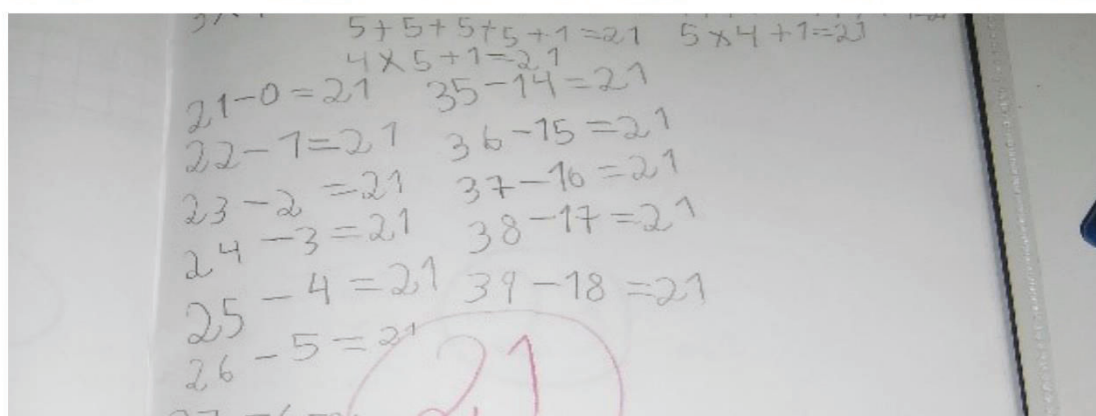 5+5+5+5+1=21 5×4+1=21
4×5+1=21
21-0=21 35-14=21
22-1=21 36-15=21
23-2=21 37-16=21
24-3=21 38-17=21
25-4=21 39-18=21
26-5=21
21